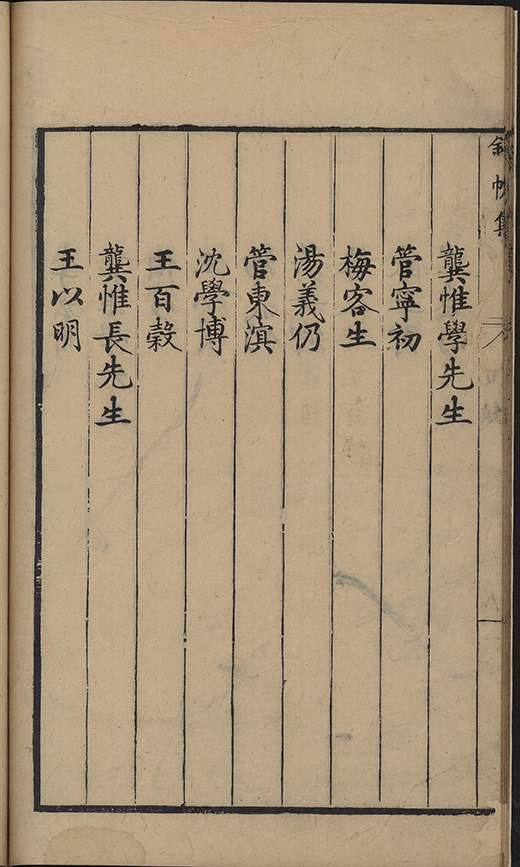 龔惟學先生
管寧初
梅客生
湯義仍
管東溟
沈學博
王百穀
龔惟長先生
王以明